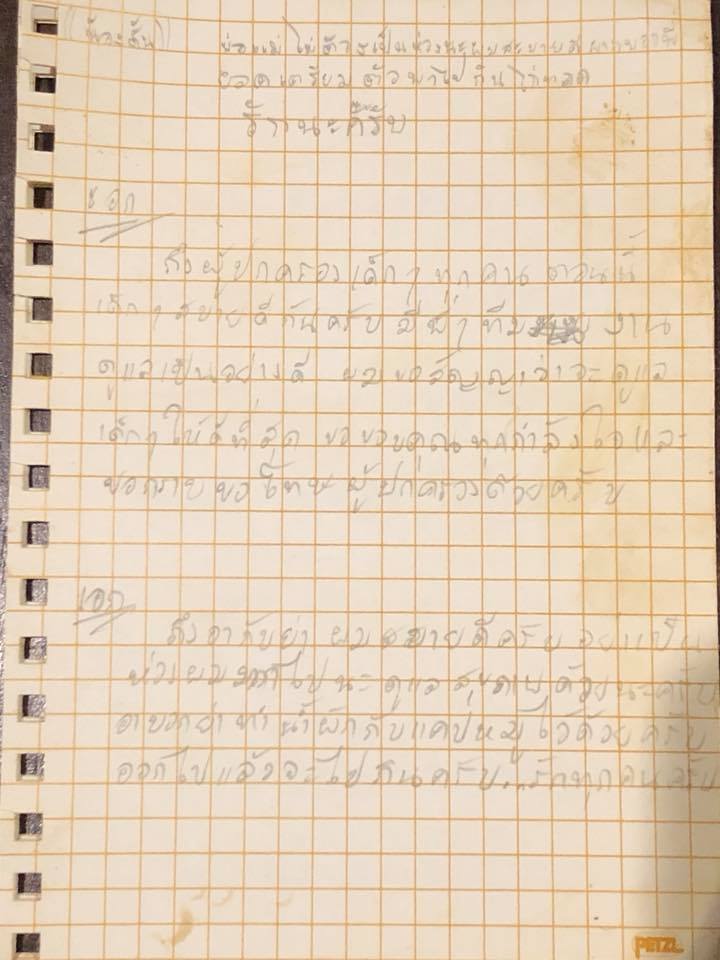 ((น้องตั้น)) พ่อแม่ไม่ต้องเป็นห่วงนะผมสบายดี
ยอดเตรียมตัวพาไปกินไก่ทอด
รักนะครับ
โค้ชเอก
ถึงผู้ปกครองเด็กๆทุกคน ตอนนี้
เด็กๆ สบายดีกันครับ มีพี่ๆทีมงาน
ดูแลเป็นอย่างดี ผมขอสัญญาว่าจะดูแล
เด็กๆ ให้ดีที่สุด ขอขอบคุณทุกกำลังใจและ
ขอกราบขอโทษผู้ปกครองด้วยครับ
เอก
ถึงอากับย่า ผมสบายดีครับ อย่าเป็น
ห่วงผมไปนะ ดูแลสุขภาพด้วยนะครับ
อาบอกย่าทำน้ำผักกับแคปหมูไว้ด้วยครับ
ออกไปแล้วจะไปกินครับ..รักทุกคนครับ
PETZL